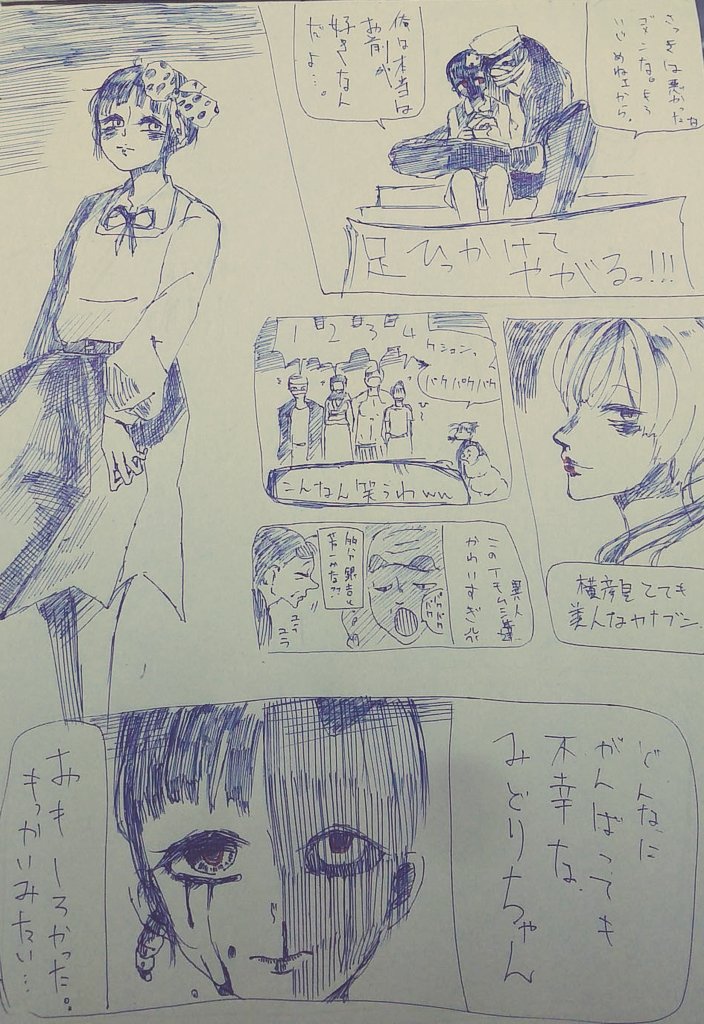 さっきは悪かったな
ゴメンな。もう
いじめねェから。
俺は本当は
お前が
好きなん
だよ…。
足ひっかけて
やがるっ!!!
1 2 3 4
クション。
パクパクパク
こんなん笑うわww
横顔見てても
美人なカナブン
この
イモムシ異人
かわいすぎ
パクパク
ユラ
ユラ
どんなに
がんばっても
不幸な
みどりちゃん
おもしろかった。
もっかいみたい…